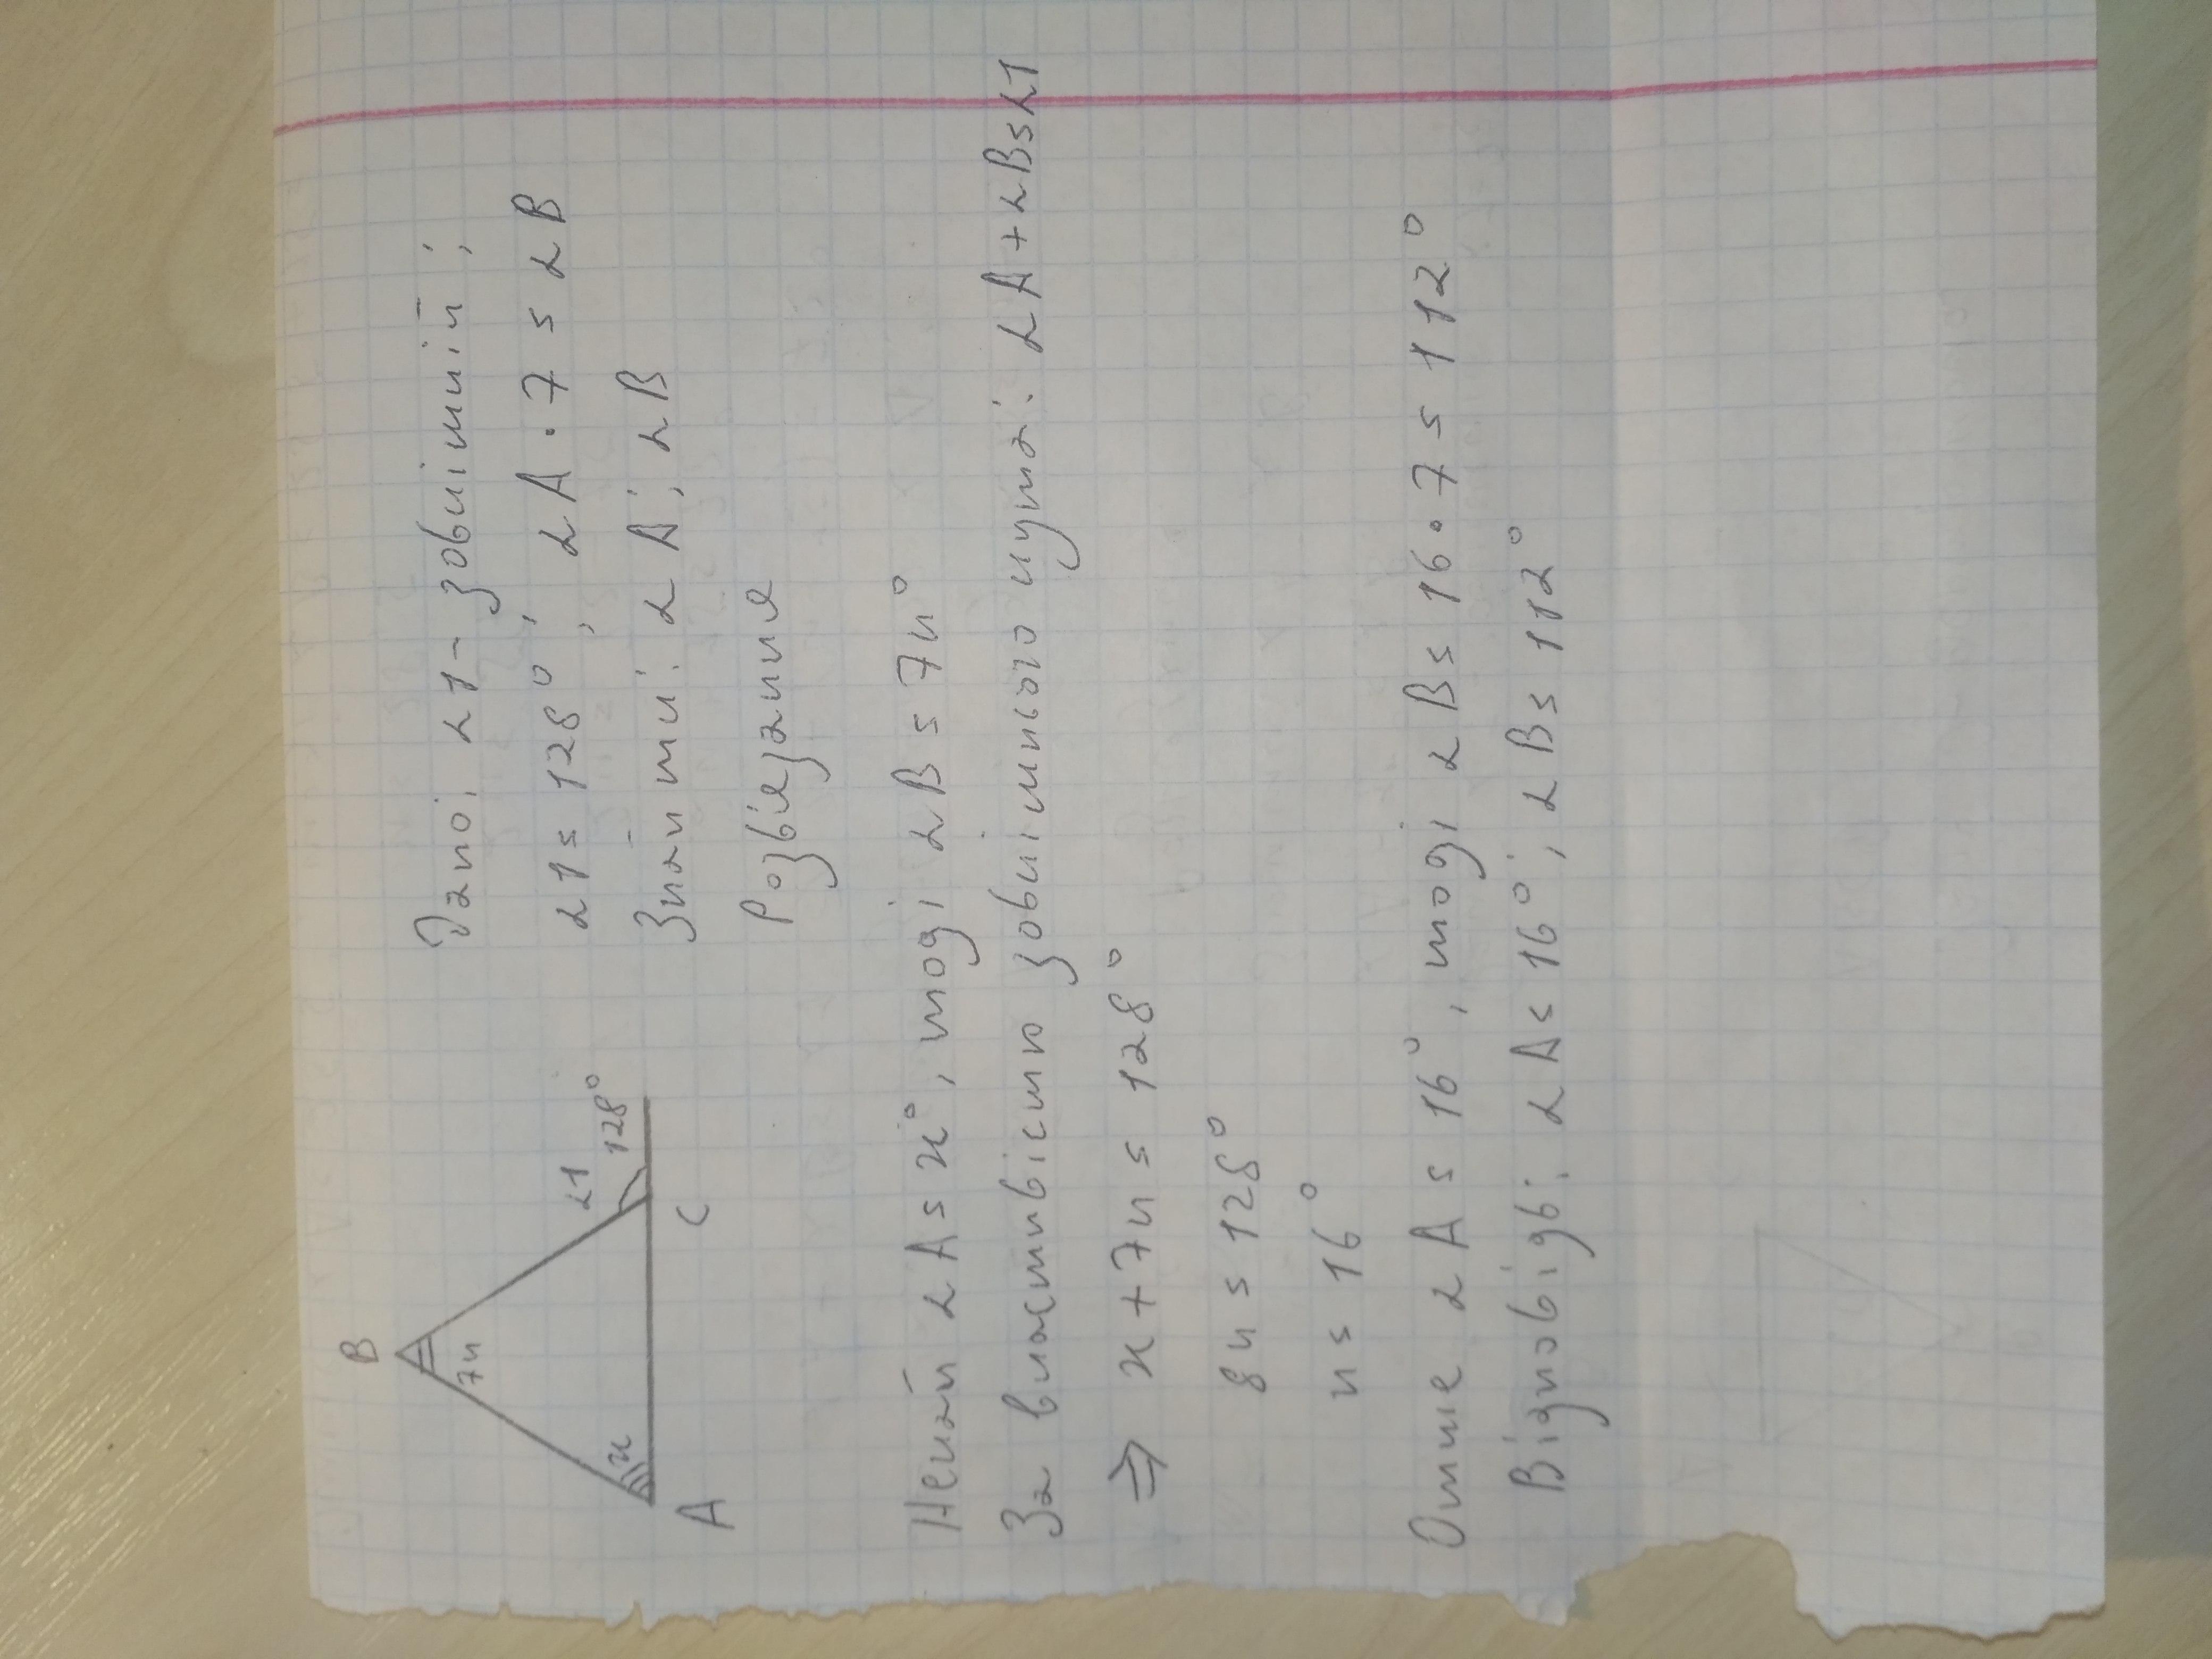 B
7x
x
∠1
128°
A
C
Дано: ∠1 - зовнішній;
∠1 = 128°; ∠A · 7 = ∠B
Знайти: ∠A; ∠B
Розв'язання
Нехай ∠A = x°, тоді ∠B = 7x°
За властивістю зовнішнього кута: ∠A + ∠B = ∠1
⇒ x + 7x = 128°
8x = 128°
x = 16°
Отже ∠A = 16°, тоді ∠B = 16 · 7 = 112°
Відповідь: ∠A = 16°; ∠B = 112°